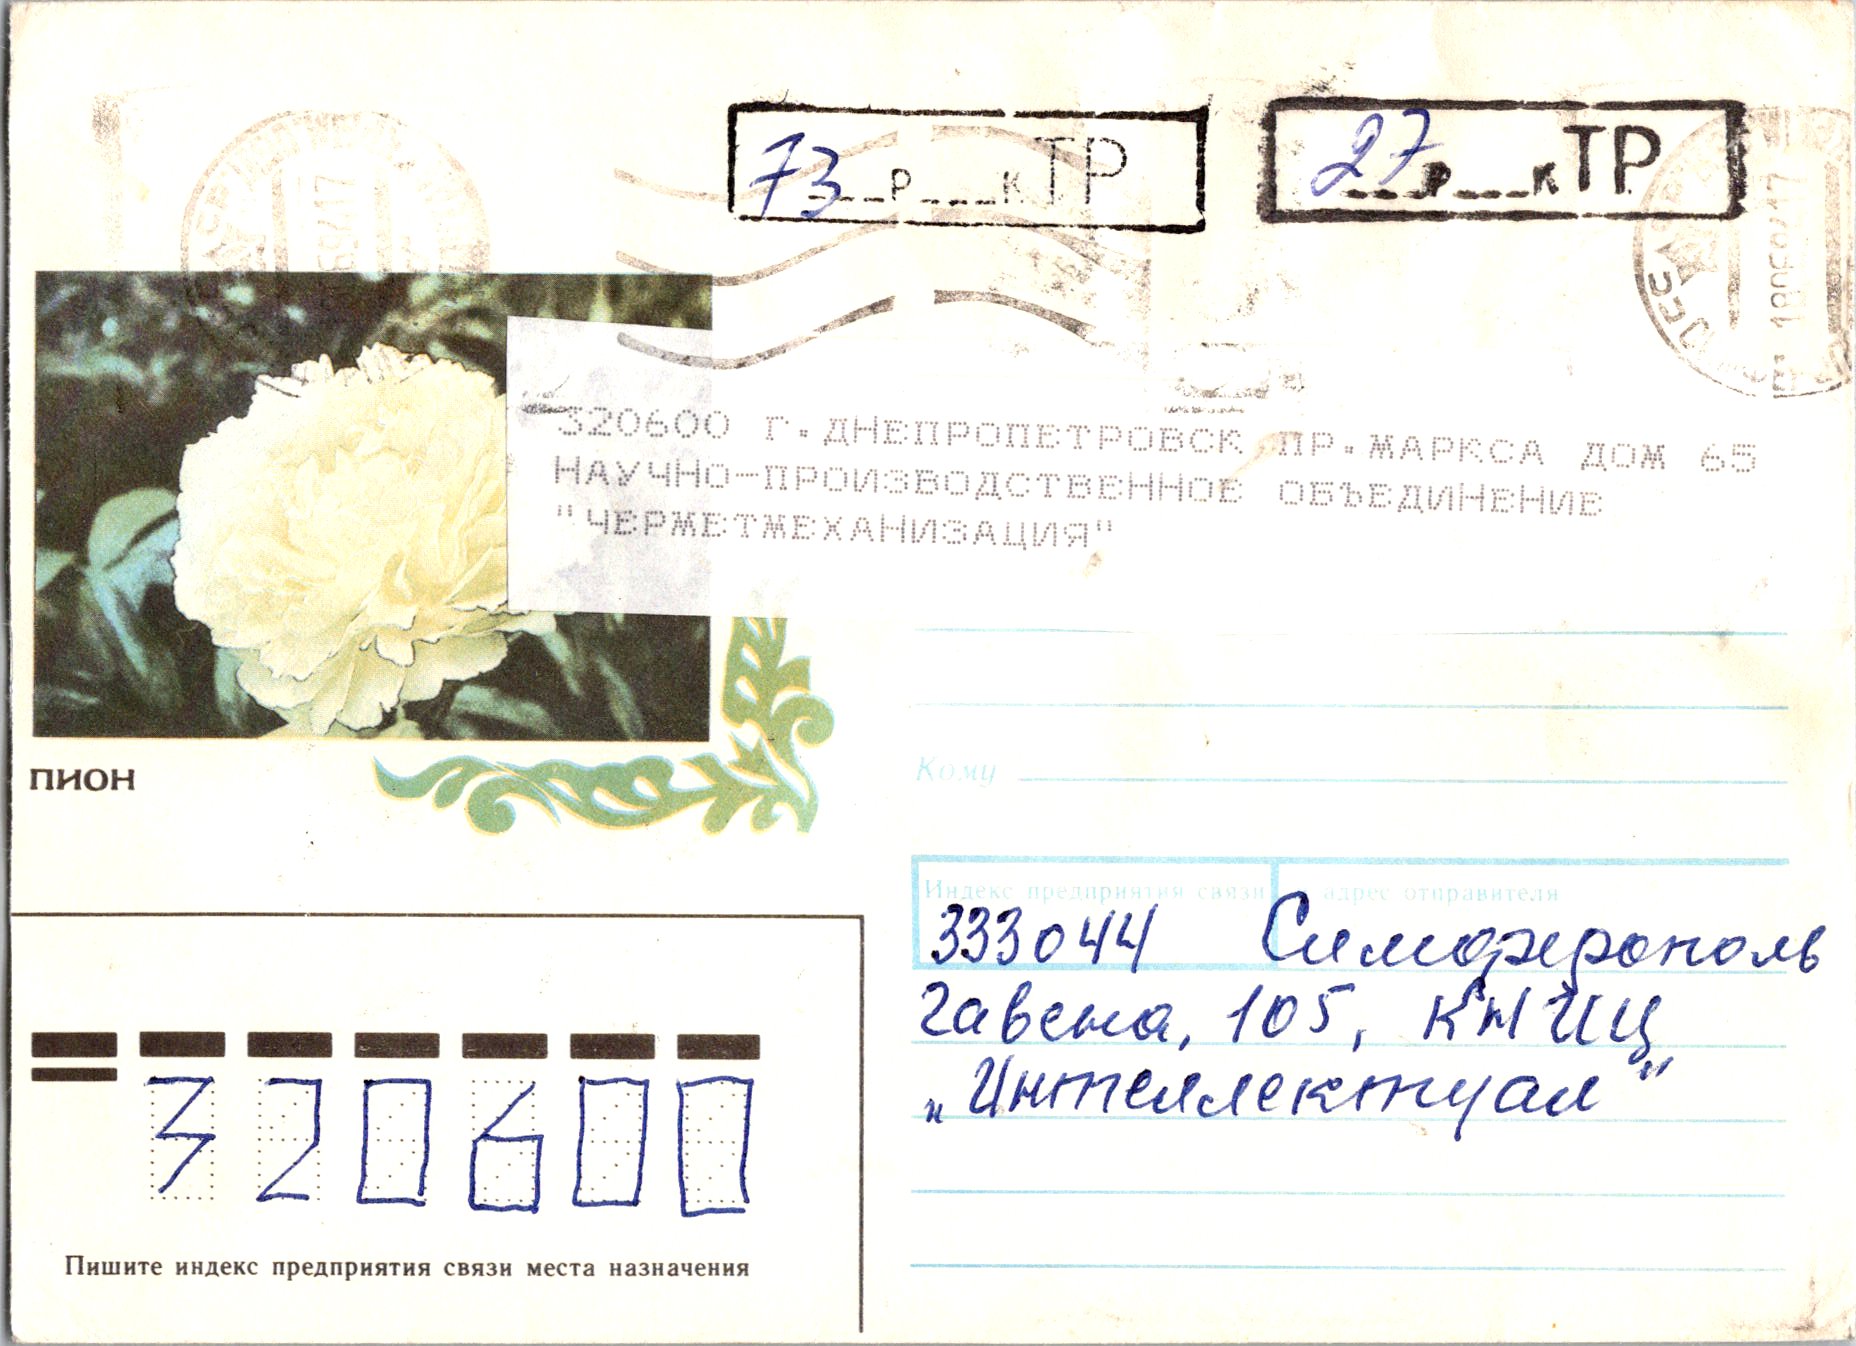 73 р к ТР
27 р к ТР
320600 Г.ДНЕПРОПЕТРОВСК ПР.МАРКСА ДОМ 65
НАУЧНО-ПРОИЗВОДСТВЕННОЕ ОБЪЕДИНЕНИЕ
"ЧЕРМЕТМЕХАНИЗАЦИЯ"
ПИОН
Кому
Индекс предприятия связи и адрес отправителя
333044 Симферополь
Гавена, 105, КМИЦ
„Интеллектуал"
320600
Пишите индекс предприятия связи места назначения